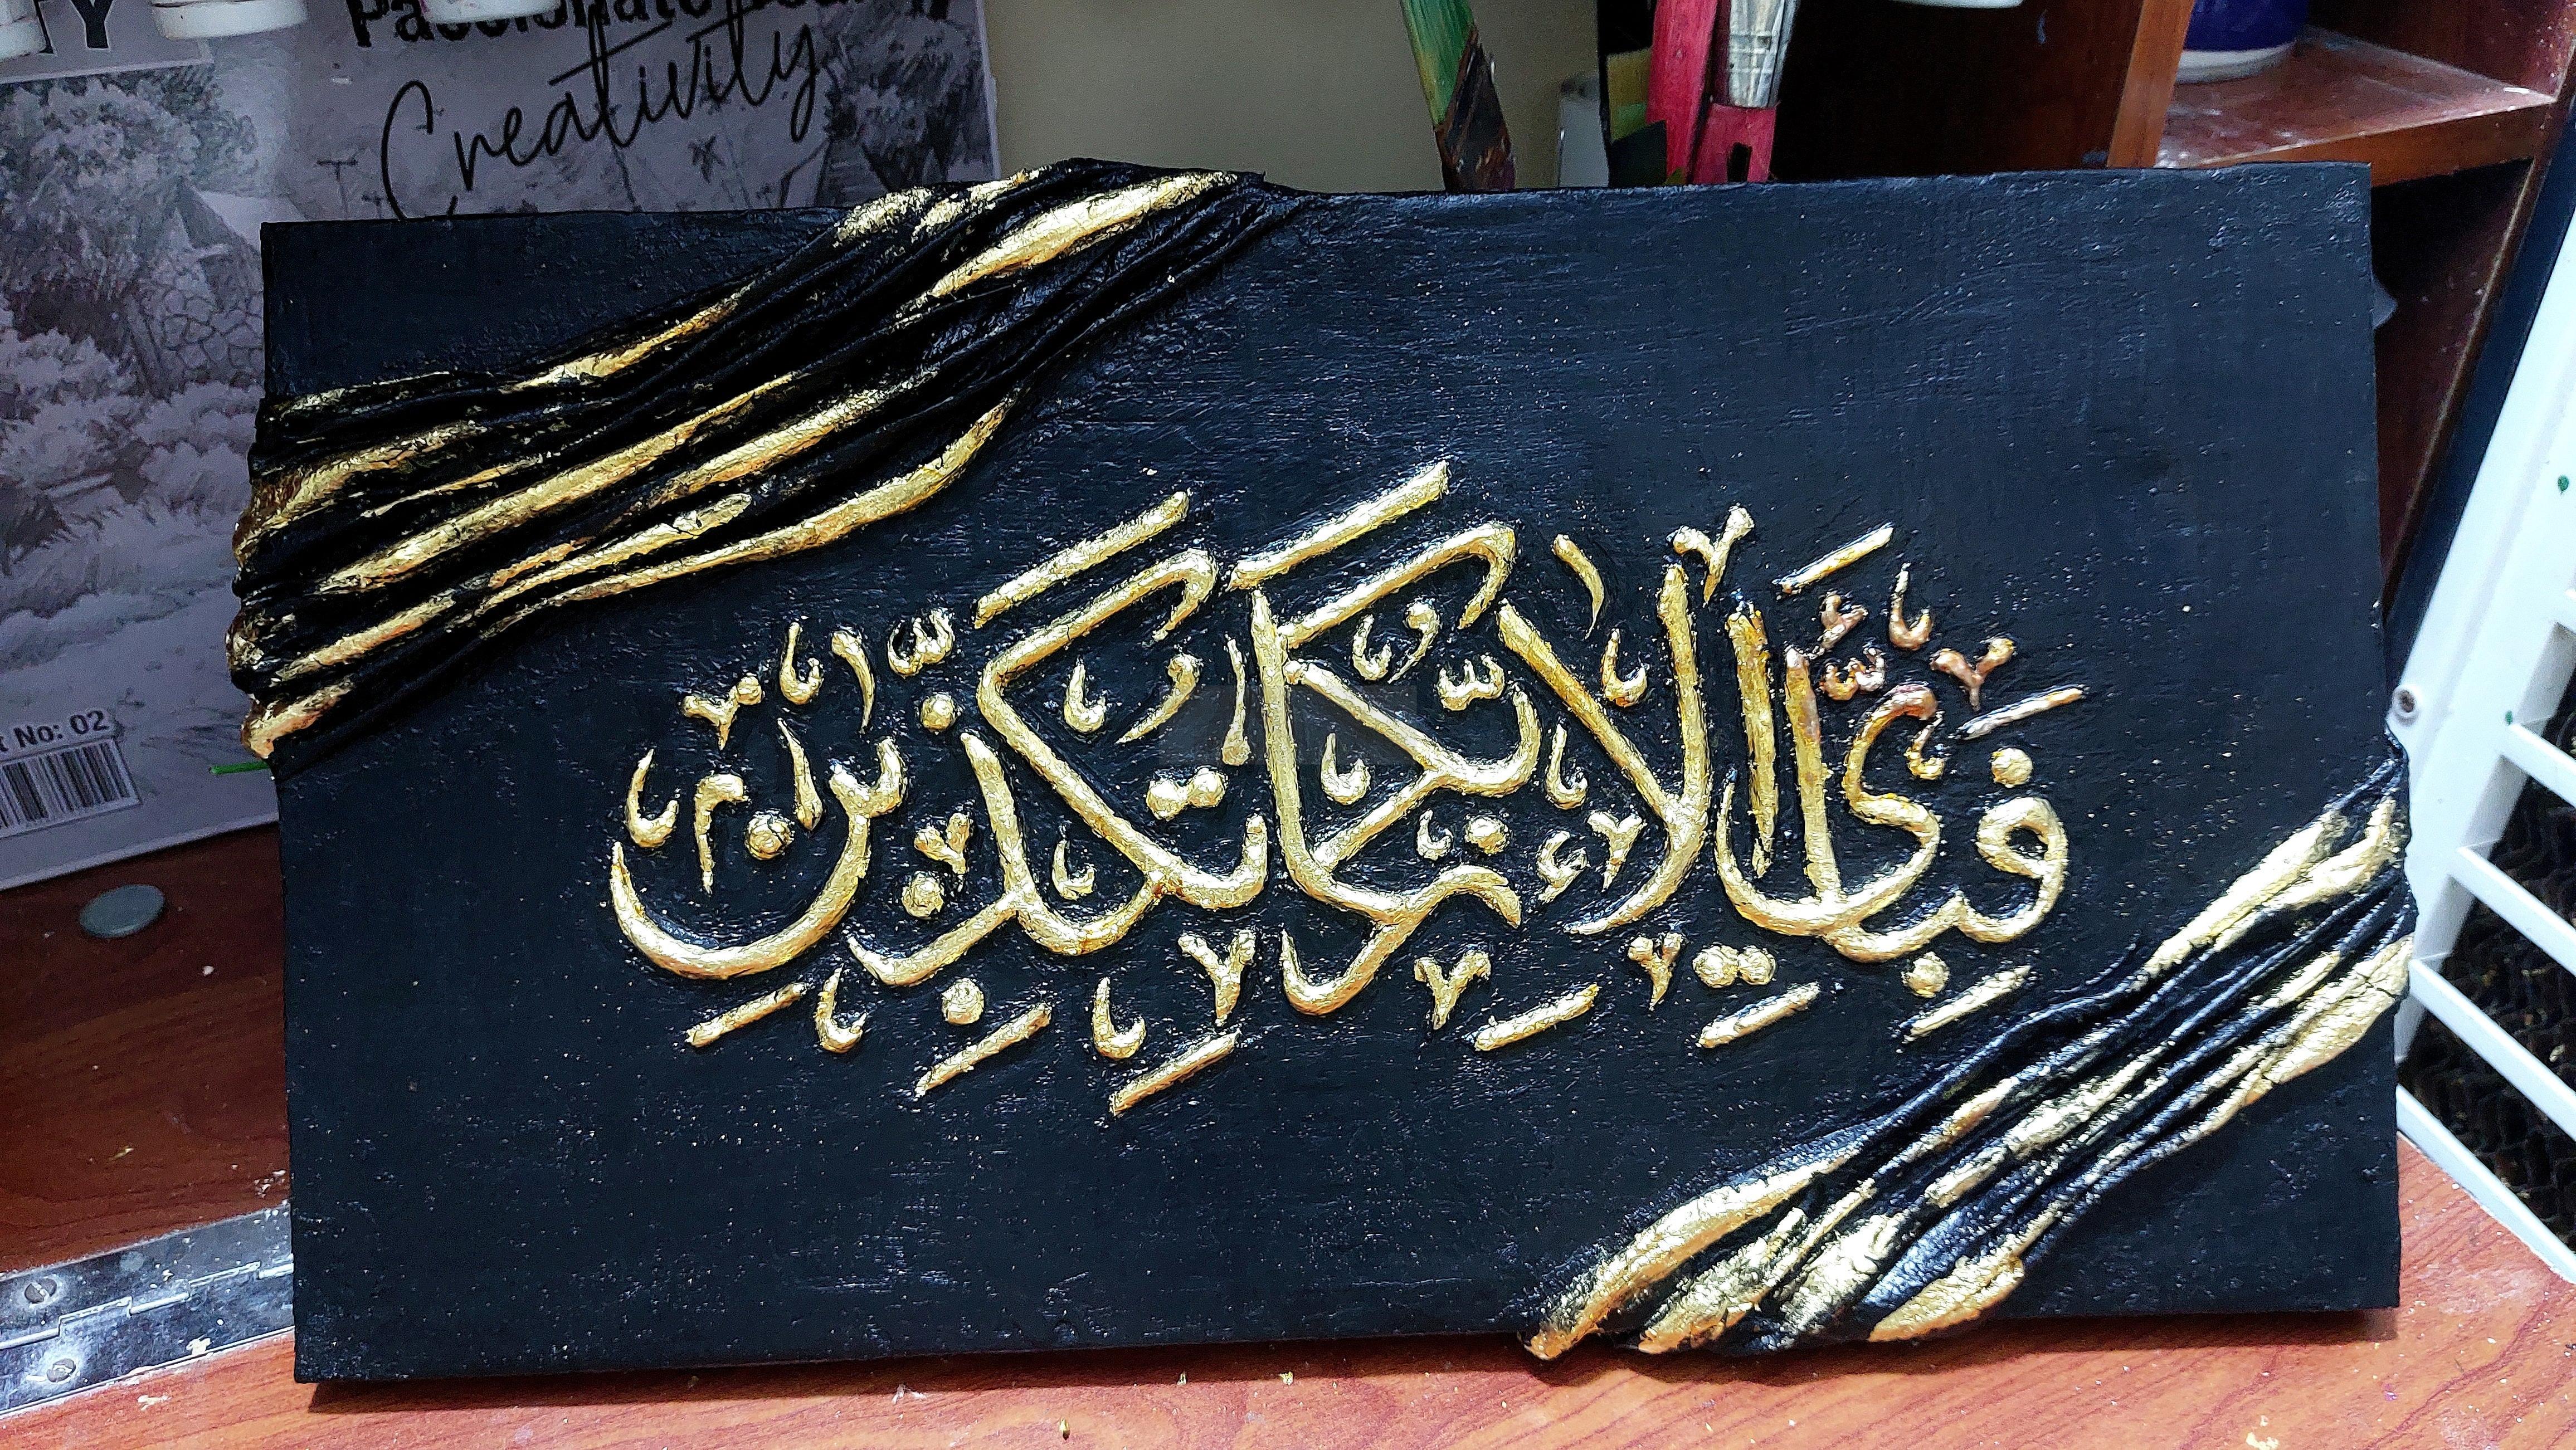 Passionate
Creativity
فَبِأَيِّ آلَاءِ رَبِّكُمَا تُكَذِّبَانِ
No: 02